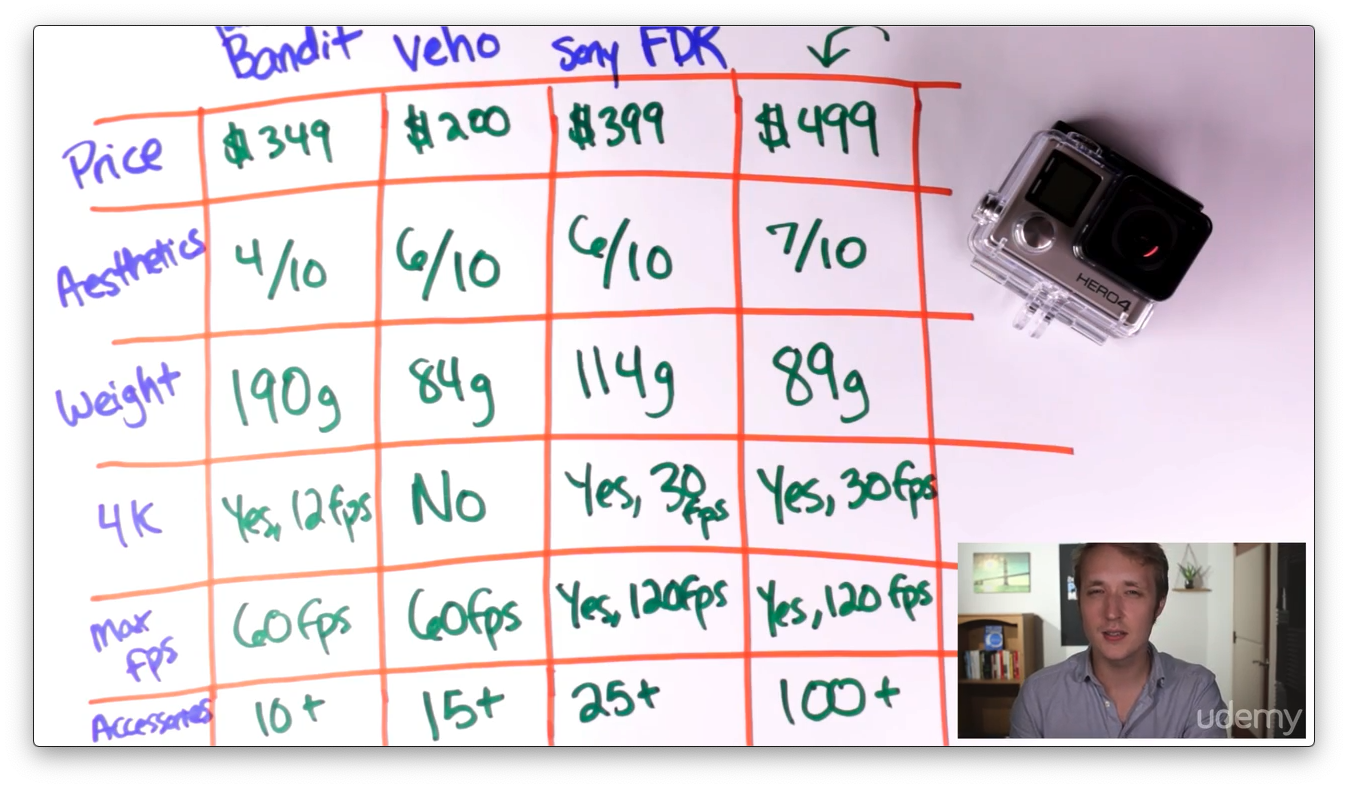 Bandit Veho Sony FDR
Price $349 $200 $399 $499
Aesthetics 4/10 6/10 6/10 7/10
Weight 190g 84g 114g 89g
HERO4
4K Yes, 12fps No Yes, 30 fps Yes, 30fps
Max fps 60fps 60fps Yes, 120fps Yes, 120 fps
Accessories 10+ 15+ 25+ 100+
udemy